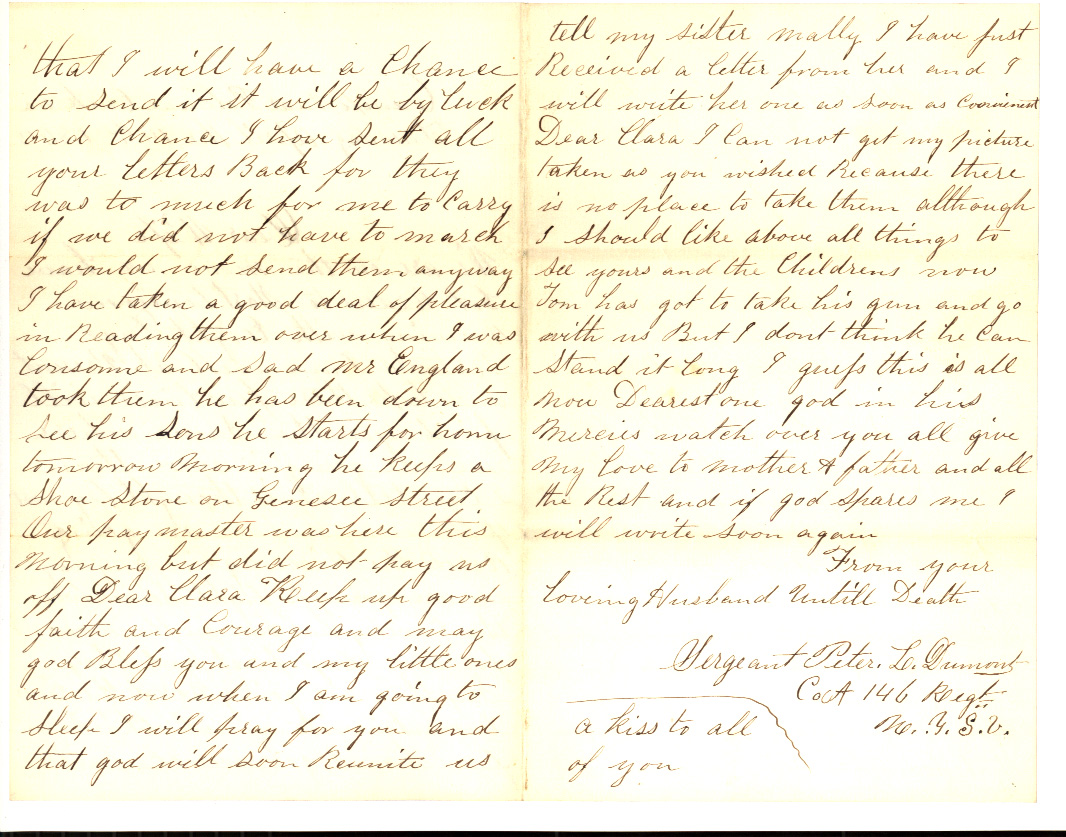 that I will have a Chance
to send it it will be by luck
and Chance I have sent all
your letters Back for they
was to much for me to Carry
if we did not have to march
I would not send them anyway
I have taken a good deal of pleasure
in Reading them over when I was
Lonsome and sad Mr England
took them he has been down to
see his sons he starts for home
tomorrow Morning he keeps a
Shoe Store on Genesee Street
Our paymaster was here this
Morning but did not pay us
off Dear Clara Keep up good
faith and Courage and may
god Bless you and my little ones
and now when I am going to
sleep I will pray for you and
that god will soon Reunite us
tell my sister mally I have just
Received a letter from her and I
will write her one as soon as Convenient
Dear Clara I Can not get my picture
taken as you wished Because there
is no place to take them although
I should like above all things to
see yours and the Childrens now
Tom has got to take his gun and go
with us But I dont think he Can
Stand it long I guess this is all
now Dearest one god in his
Mercies watch over you all give
My love to mother & father and all
the Rest and if god spares me I
will write soon again
From your
Loving Husband Untill Death
Sergeant Peter. L. Dumont
Co A 146 Regt
N. Y. S. V.
a kiss to all
of you